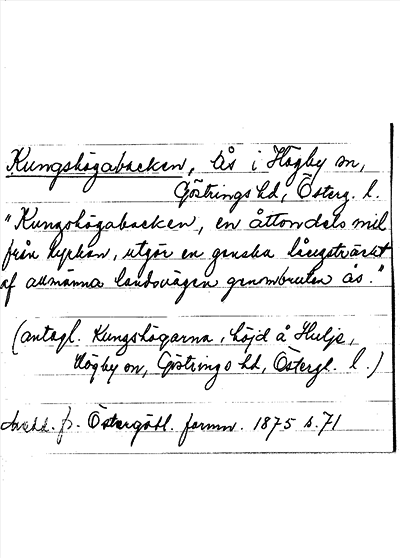 Kungshögabacken, ås i Högby sn,
Göstrings hd, Österg. l.
"Kungshögabacken, en åttondels mil
från kyrkan, utgör en ganska långsträckt
af allmänna landsvägen genombruten ås."
(antagl. Kungshögarna, höjd å Hulje,
Högby sn, Göstrings hd, Östergl. l.)
f. Östergötl. fornm. 1875 s. 71